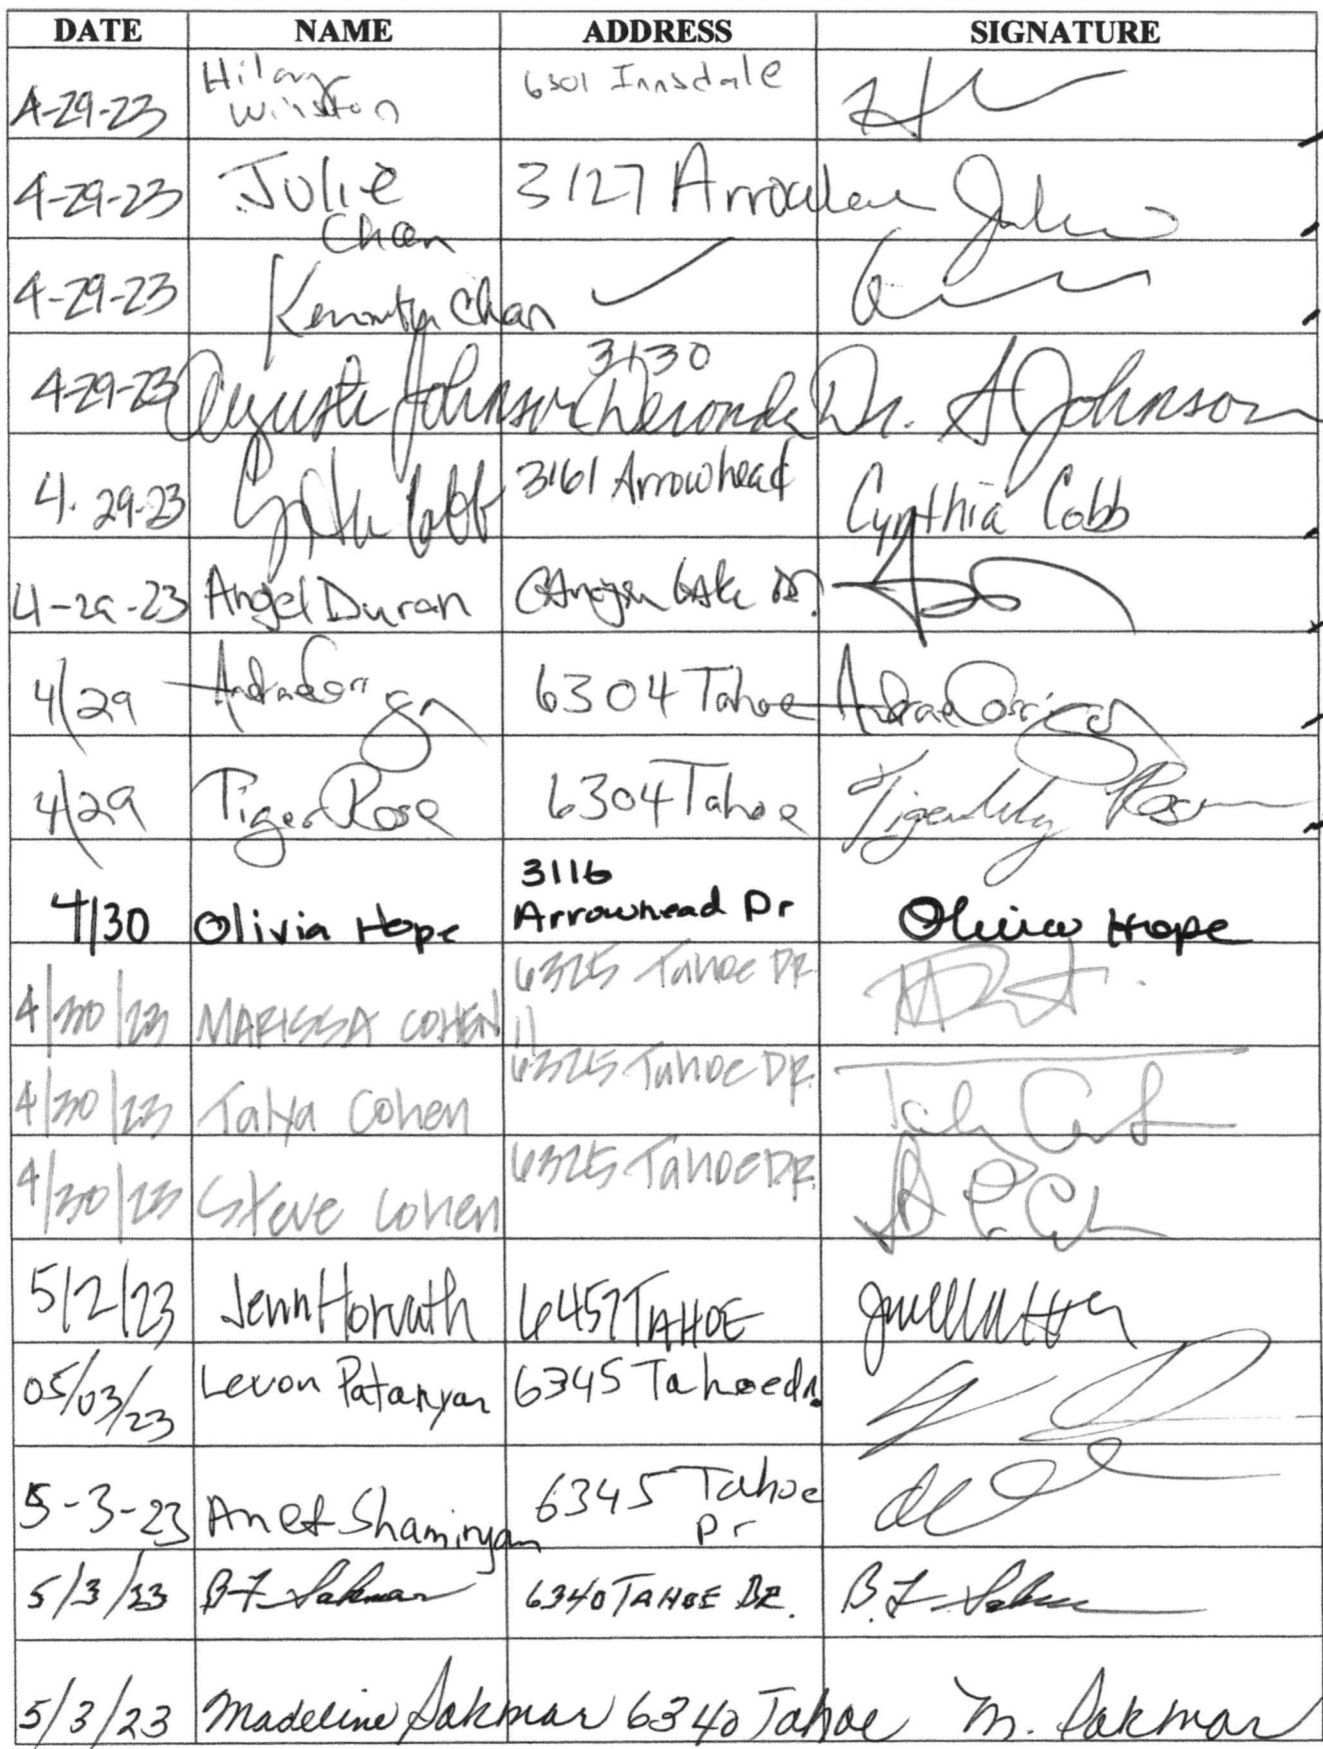 DATE NAME ADDRESS SIGNATURE
4-29-23 Hilary Winston 6301 Innsdale
4-29-23 Julie Chan 3127 Julie
4-29-23 Kenneth Chan ✓
4-29-23 Auguste Johnson 3130 Deronda Dr. A Johnson
4-29-23 Cobb 3161 Arrowhead Cynthia Cobb
4-29-23 Angel Duran Lake Dr.
4/29 6304 Tahoe
4/29 Tiger Rose 6304 Tahoe Tigerlily Rose
4/30 Olivia Hope 3116 Arrowhead Dr Olivia Hope
4/30/23 MARISSA COHEN 6325 Tahoe DR
4/30/23 Talya Cohen 6325 Tahoe DR.
4/30/23 Steve Cohen 6325 Tahoe DR.
5/2/23 Jenn Horvath 6457 TAHOE
05/03/23 Levon Patanyan 6345 Tahoe dr.
5-3-23 Anet Shaminyan 6345 Tahoe Dr
5/3/23 B.F. Sakmar 6340 TAHOE DR. B.F. Sakmar
5/3/23 Madeline Sakmar 6340 Tahoe M. Sakmar